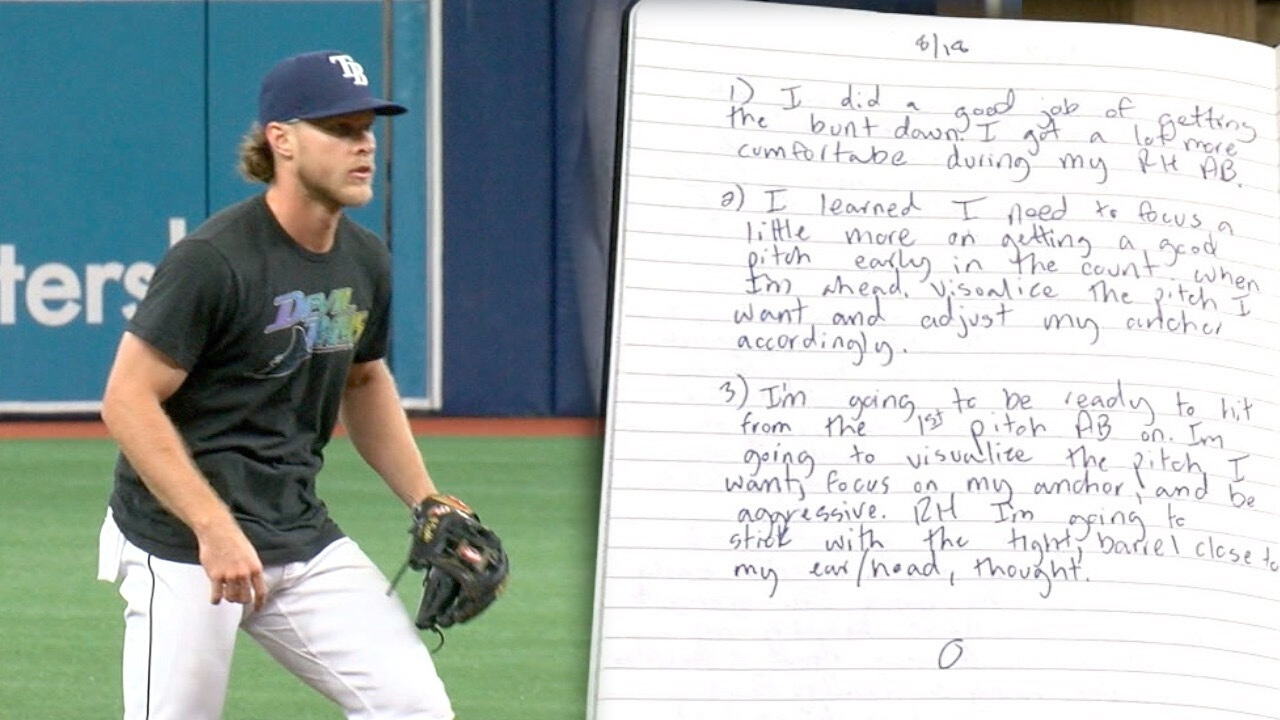 ters
TB
DEVIL
RAYS
8/18
1) I did a good job of getting
the bunt down. I got a lot more
cumfortabe during my RH AB.
2) I learned I need to focus a
little more on getting a good
pitch early in the count when
I'm ahead. Visualice the pitch I
want and adjust my anchor
accordingly.
3) I'm going to be ready to hit
from the 1st pitch AB on. Im
going to visualize the pitch I
want, focus on my anchor, and be
aggressive. RH I'm going to
stick with the tight, barrel close to
my ear/head, thought.
0